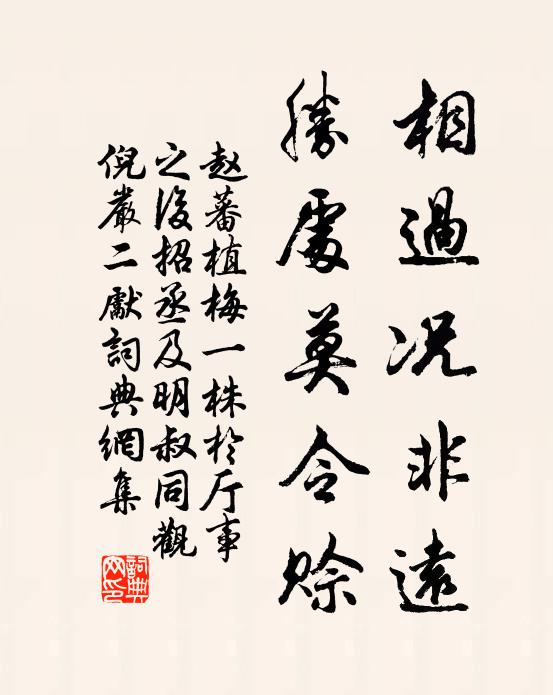 相過況非遠
勝處莫令賒
赵蕃植梅一株於厅事
之後招丞及明叔同觀
倪嚴二獻詞典網集
詞典网印